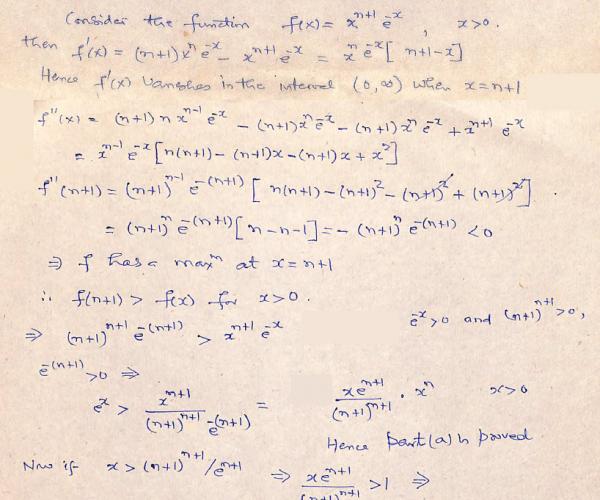 Consider the function f(x) = x^{n+1} e^{-x}, x>0.
then f'(x) = (n+1) x^n e^{-x} - x^{n+1} e^{-x} = x^n e^{-x} [n+1-x]
Hence f'(x) vanishes in the interval (0,∞) when x=n+1
f''(x) = (n+1) n x^{n-1} e^{-x} - (n+1) x^n e^{-x} - (n+1) x^n e^{-x} + x^{n+1} e^{-x}
= x^{n-1} e^{-x} [n(n+1) - (n+1)x - (n+1)x + x^2]
f''(n+1) = (n+1)^{n-1} e^{-(n+1)} [n(n+1) - (n+1)^2 - (n+1)^2 + (n+1)^2].
= (n+1)^n e^{-(n+1)} [n-n-1] = - (n+1)^n e^{-(n+1)} < 0
⇒ f has a max^m at x=n+1
∴ f(n+1) > f(x) for x>0.
⇒ (n+1)^{n+1} e^{-(n+1)} > x^{n+1} e^{-x} e^{-x}>0 and (n+1)^{n+1}>0,
e^{-(n+1)}>0 ⇒
e^x > x^{n+1} / (n+1)^{n+1} e^{-(n+1)} = x e^{n+1} / (n+1)^{n+1} · x^n x>0
Hence part (a) is proved
Now if x > (n+1)^{n+1} / e^{n+1} ⇒ x e^{n+1} / (n+1)^{n+1} > 1 ⇒